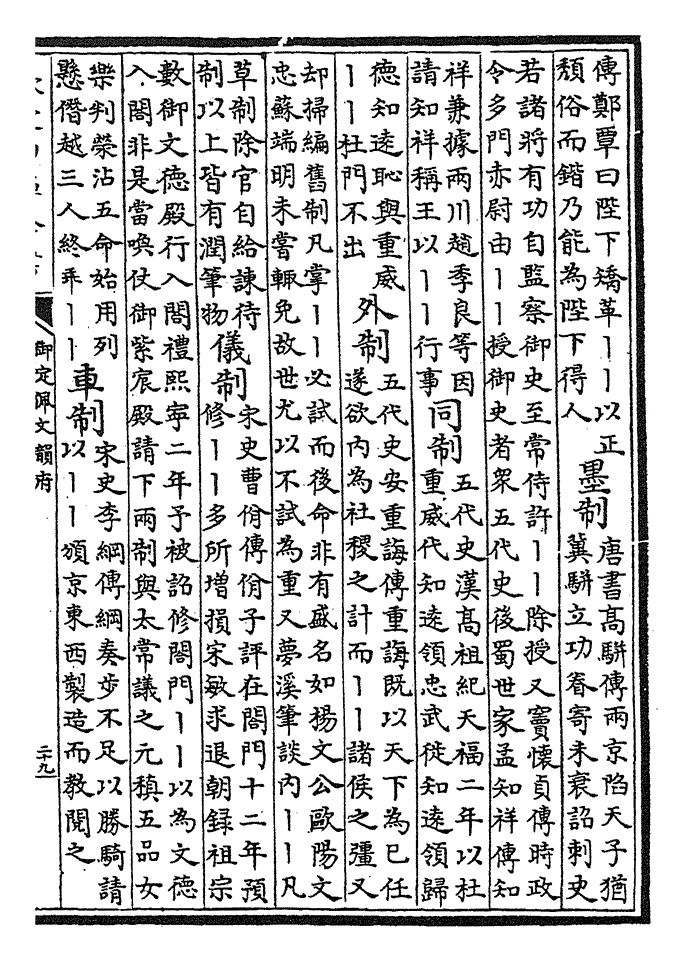 傳鄭覃曰陛下矯革丨丨以正
頽俗而鍇乃能為陛下得人
墨制
唐書高駢傳兩京陷天子猶
冀駢立功眷寄未衰詔刺史
若諸將有功自監察御史至常侍許丨丨除授又竇懷貞傳時政
令多門赤尉由丨丨授御史者衆五代史後蜀世家孟知祥傳知
祥兼據兩川趙季良等因
請知祥稱王以丨丨行事
同制
五代史漢高祖紀天福二年以杜
重威代知逺領忠武徙知逺領歸
德知逺恥與重威
丨丨杜門不出
外制
五代史安重誨傳重誨既以天下為已任
遂欲内為社稷之計而丨丨諸侯之彊又
却掃編舊制凡掌丨丨必試而後命非有盛名如楊文公歐陽文
忠蘇端明未嘗輙免故世尤以不試為重又夢溪筆談内丨丨凡
草制除官自給諫待
制以上皆有潤筆物
儀制
宋史曹佾傳佾子評在閤門十二年預
修丨丨多所增損宋敏求退朝録祖宗
數御文德殿行入閤禮熙寧二年予被詔修閤門丨丨以為文德
入閤非是當喚仗御紫宸殿請下兩制與太常議之元稹五品女
樂判榮沾五命始用列
懸僭越三人終乖丨丨
車制
宋史李綱傳綱奏步不足以勝騎請
以丨丨頒京東西製造而教閲之
御定佩文韻府
二十九